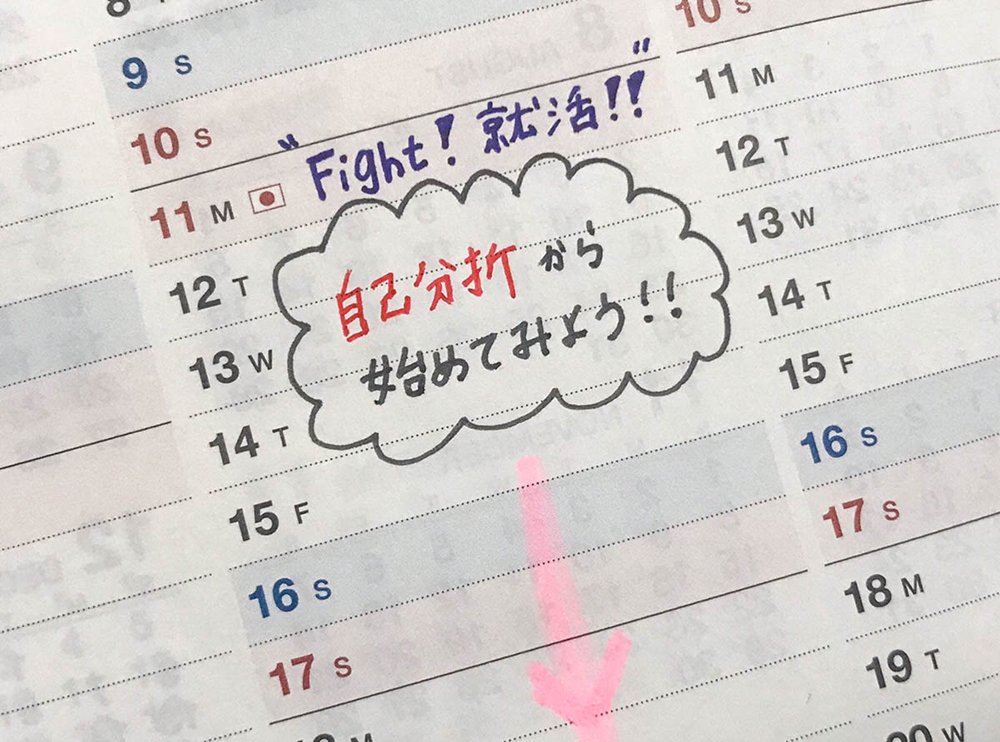 9 S
10 S
11 M
"Fight! 就活!!"
12 T
13 W
14 T
15 F
16 S
17 S
自己分折から
始めてみよう!!
10 S
11 M
12 T
13 W
14 T
15 F
16 S
17 S
18 M
19 T
20 W